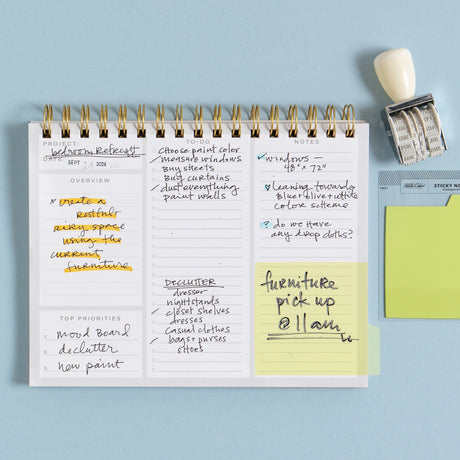 PROJECT:
bedroom Retreat
DATE:
SEPT 2024
OVERVIEW
* create a
restful
airy space
using the
current
furniture
TOP PRIORITIES
1. mood board
2. declutter
3. new paint
TO-DO
choose paint color
measure windows
buy sheets
buy curtains
dust everything
paint walls
DECLUTTER
dresser
nightstands
closet shelves
dresses
casual clothes
bags + purses
shoes
NOTES
windows —
48" x 72"
leaning towards
blue + olive + white
color scheme
? do we have
any drop cloths?
furniture
pick up
@ 11am
STICKY NOTE